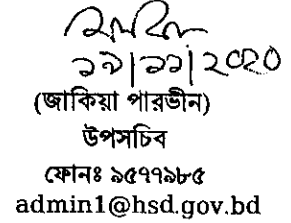 ১৯|১১|২০২০
(জাকিয়া পারভীন)
উপসচিব
ফোনঃ ৯৫৭৭৯৮৫
admin1@hsd.gov.bd